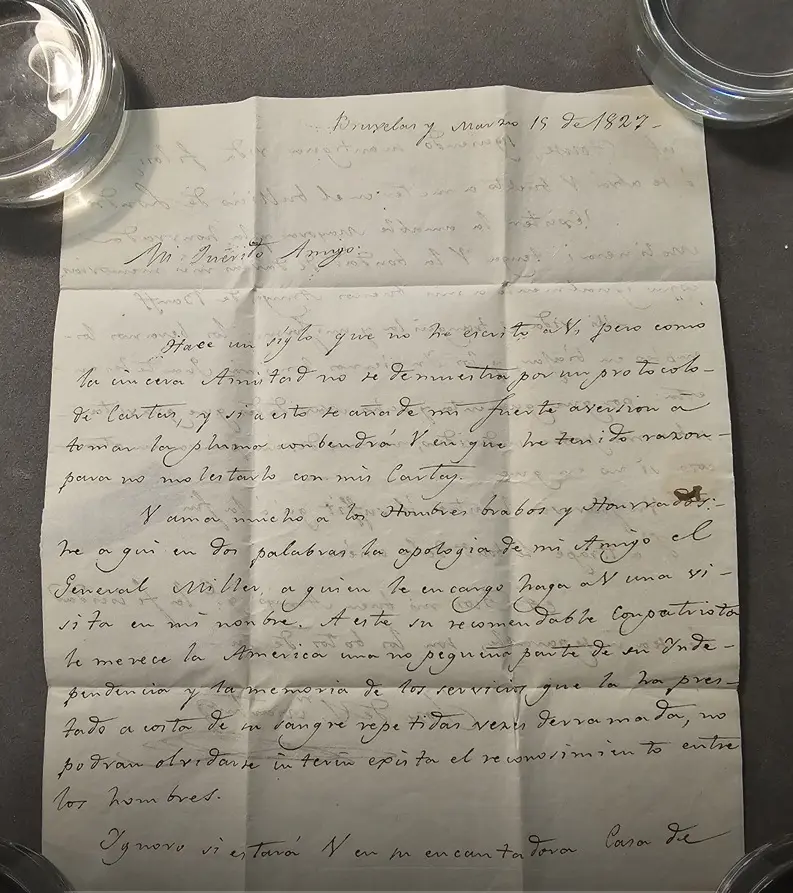 Bruxelas y Marzo 15 de 1827-
Mi Querito Amigo:
Hace un siglo que no he escrito a V, pero como
la cincera Amistad no se demuestra por un protocolo-
de Cartas, y si a esto se añade mi fuerte aversion a
tomar la pluma conbendrá V en que he tenido razon-
para no molestarlo con mis Cartas.
V ama mucho a los Hombres brabos y Honrrados:-
he aqui en dos palabras la apologia de mi Amigo el
General Miller, a quien le encargo haga a V una vi-
sita en mi nonbre. A este su recomendable conpatriota
le merece la America una no pequeña parte de su Inde-
pendencia y la memoria de los servicios que la ha pres-
tado a costa de su sangre repetidas vezes derramada, no
podran olvidarse interin exista el reconosimiento entre
los hombres.
Ygnoro si estará V en su encantadora Casa de